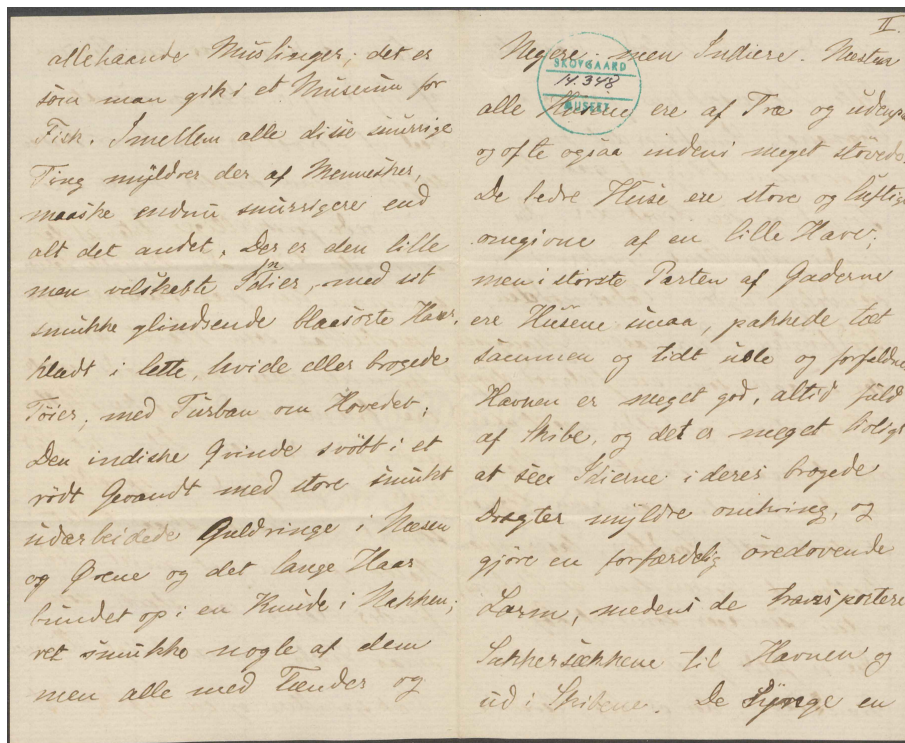 allehaande Muslinger; det er
som man gik i et Museum for
Fisk. Imellem alle disse snurrige
Ting myldrer der af Mennesker,
maaske endnu snurrigere end
alt det andet. Der er den lille
men velskabte Idier, med sit
n
smukke glindsende blaasorte Haar,
klædt i lette, hvide eller brogede
Tøier, med Turban om Hovedet;
Den indiske Qvinde svøbt i et
rødt Gevandt med store smukt
udarbeidede Guldringe i Næsen
og Ørene og det lange Haar
bundet op i en Knude i Nakken;
ret smukke nogle af dem
men alle med Tænder og
II.
Negere men Indiere. Næsten
SKOVGAARD
14348
MUSEET
alle Husene ere af Træ og udenpaa
og ofte ogsaa indeni meget støvede.
De bedre Huse ere store og luftige
omgivne af en lille Have;
men i største Parten af Gaderne
ere Husene smaa, pakkede tæt
sammen og tidt usle og forfaldne
Havnen er meget god, altid fuld
af Skibe, og det er meget livligt
at see Idierne i deres brogede
Dragter myldre omkring, og
gjøre en forfærdelig øredovende
Larm, medens de transportere
Sukkersækkene til Havnen og
ud i Skibene. De synge en